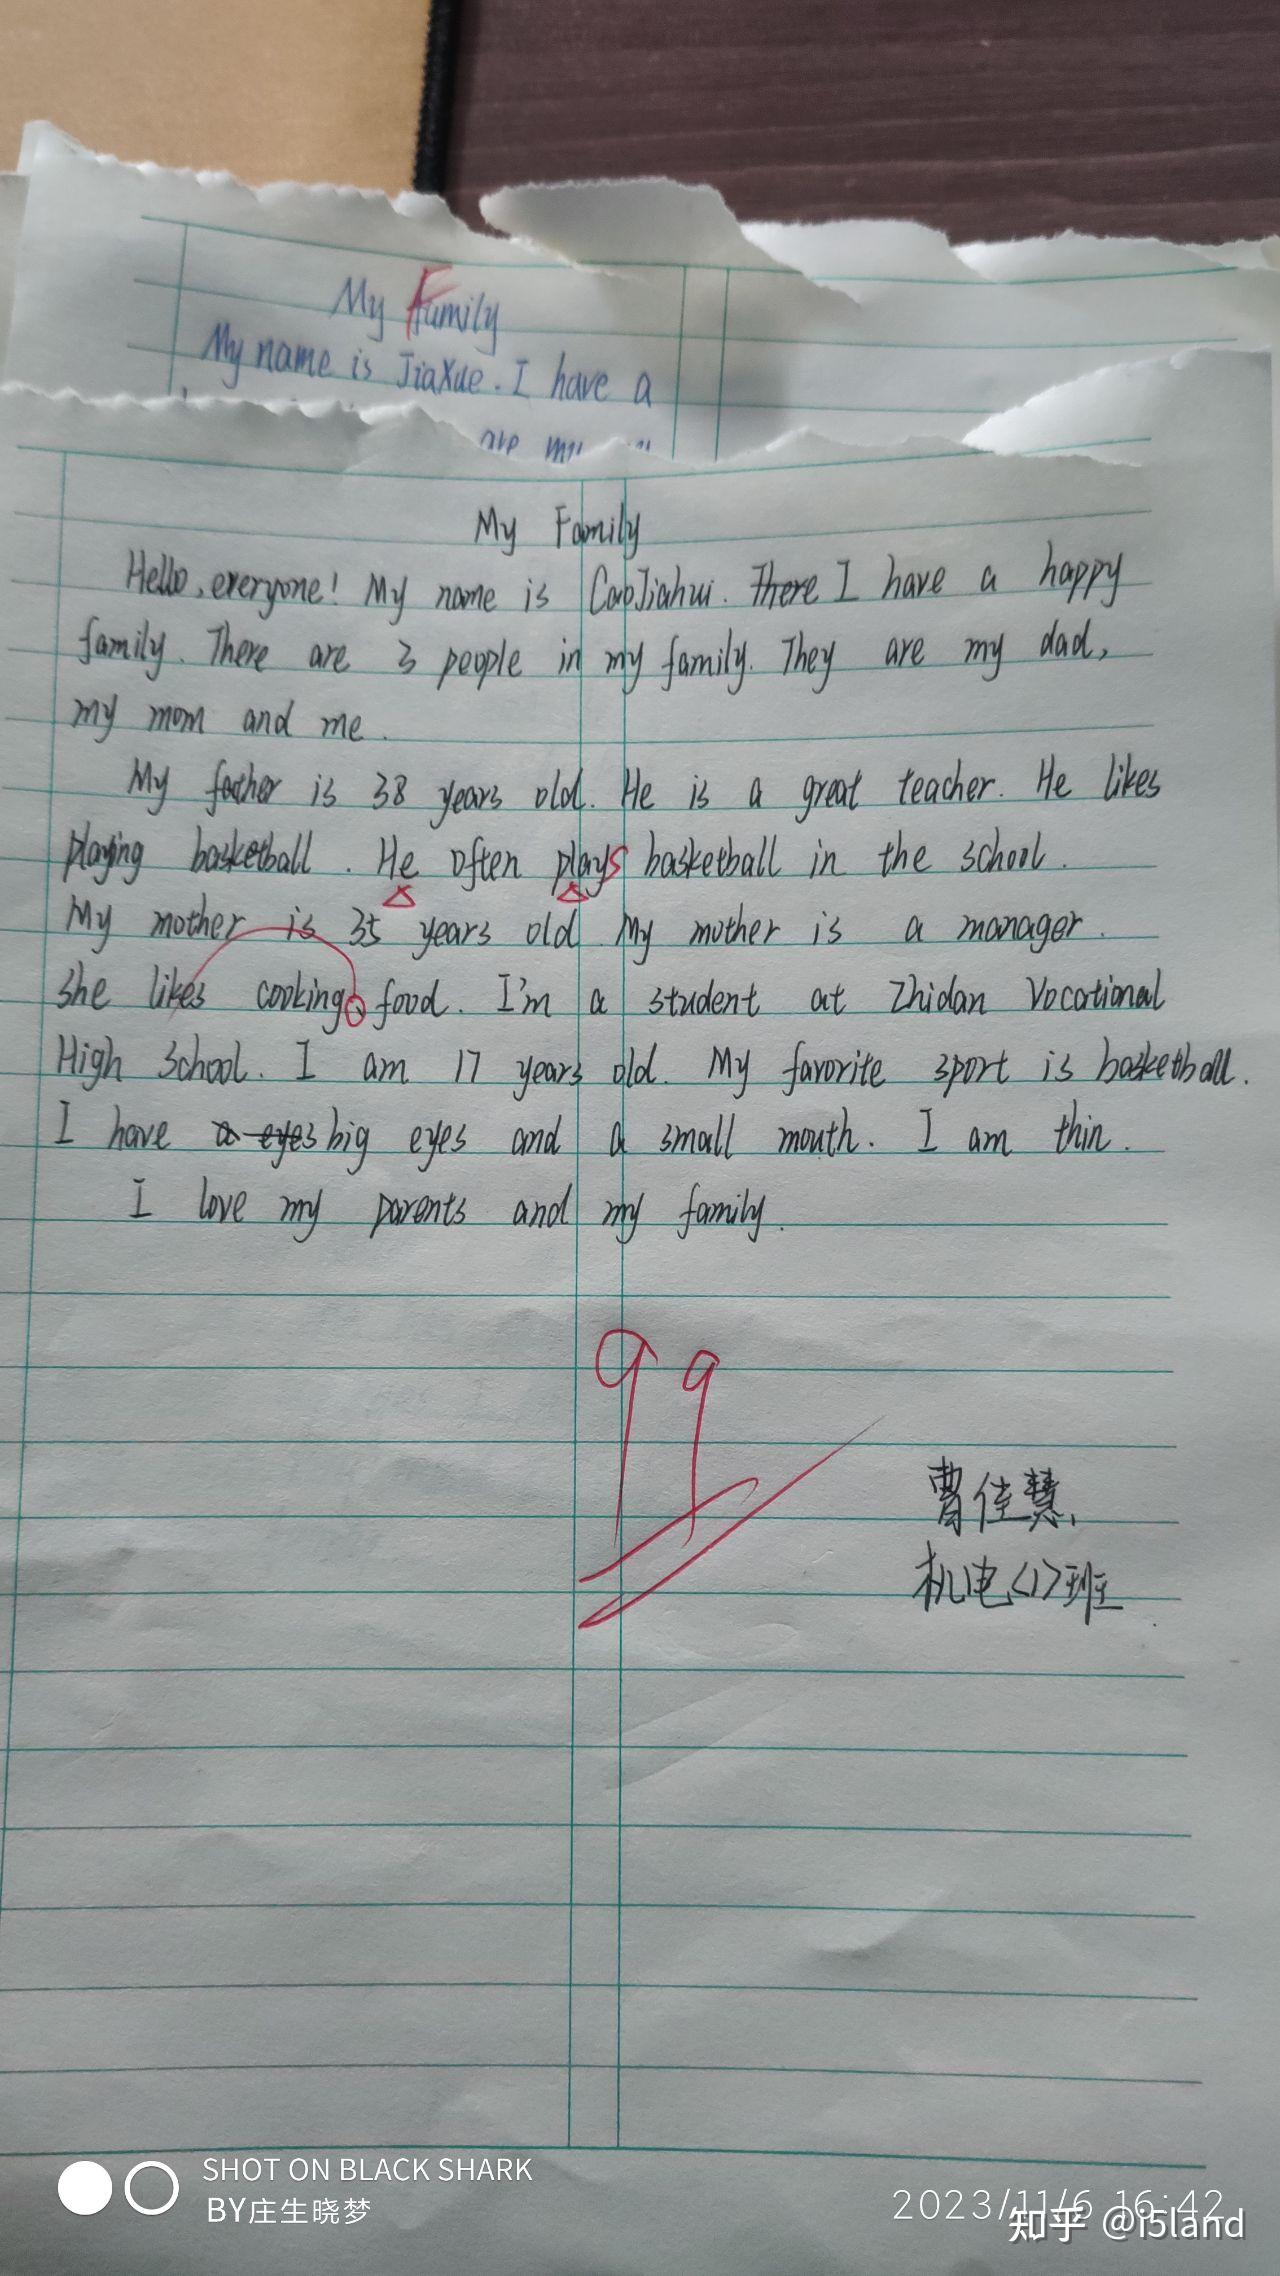 My Family
My name is JiaXue. I have a
are my
My Family
Hello, everyone! My name is CaoJiahui. There I have a happy
family. There are 3 people in my family. They are my dad,
my mom and me.
My father is 38 years old. He is a great teacher. He likes
playing basketball. He often plays basketball in the school.
My mother is 35 years old. My mother is a manager.
she likes cooking food. I'm a student at Zhidan Vocational
High School. I am 17 years old. My favorite sport is basketball.
I have a eyes big eyes and a small mouth. I am thin.
I love my parents and my family.
99
曹佳慧
机电<1>班
SHOT ON BLACK SHARK
BY庄生晓梦
2023/11/6 16:42
知乎 @i5land